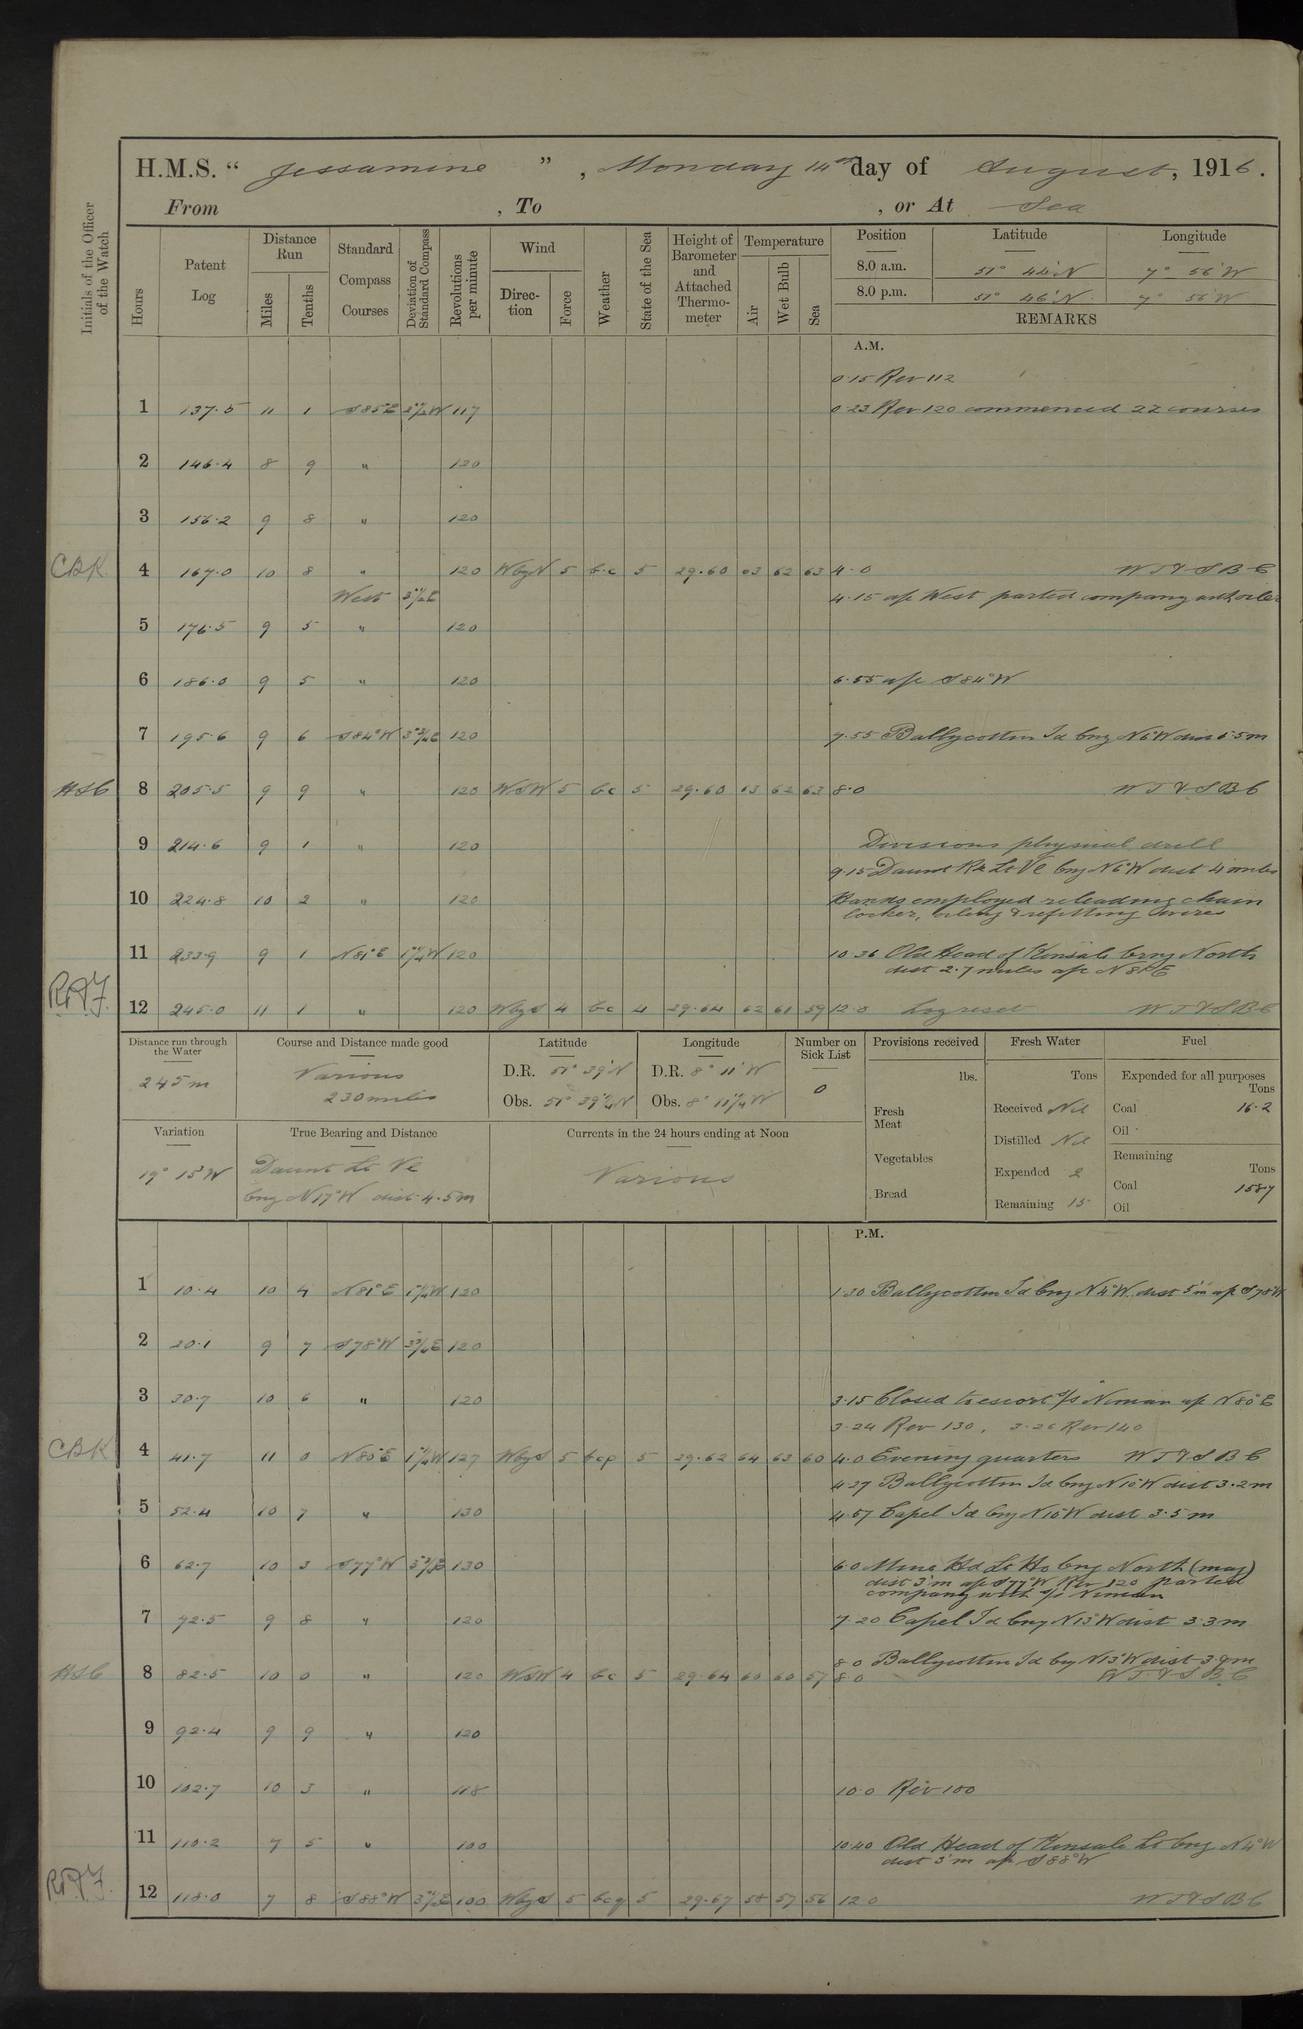 H.M.S. “ Jessamine ”, Monday 14th day of August, 1916.
From , To , or At Sea
Initials of the Officer of the Watch
Hours
Patent Log
Distance Run
Miles
Tenths
Standard Compass Courses
Deviation of Standard Compass
Revolutions per minute
Wind
Direction
Force
Weather
State of the Sea
Height of Barometer and Attached Thermometer
Temperature
Air
Wet Bulb
Sea
Position Latitude Longitude
8.0 a.m. 51° 44'N 7° 56'W
8.0 p.m. 51° 46'N 7° 56'W
REMARKS
A.M.
0.15 Rev 112
1 137.5 11 1 S85°E 117 0.23 Rev 120 commenced ZZ courses
2 146.4 8 9 " 120
3 156.2 9 8 " 120
CBK 4 167.0 10 8 " 120 WbyN 5 b.c 5 29.60 63 62 63 4.0 W T & S B C
West 4.15 a/c West parted company with oiler
5 176.5 9 5 " 120
6 186.0 9 5 " 120 6.55 a/c S84°W
7 195.6 9 6 S84°W 120 7.55 Ballycotton Id brg N6°W dist 5.5m
HSC 8 205.5 9 9 " 120 WSW 5 bc 5 29.60 63 62 63 8.0 W T & S B C
9 214.6 9 1 " 120 Divisions physical drill
9.15 Daunt Rk Lt Ve brg N6°W dist 4 miles
10 224.8 10 2 " 120 Hands employed releading chain
locker, oiling & refitting wires
11 233.9 9 1 N81°E 120 10.36 Old Head of Kinsale brng North
dist 2.7 miles a/c N81°E
12 245.0 11 1 " 120 WbyS 4 bc 4 29.64 62 61 59 12.0 Log reset W T & S B C
Distance run through the Water
245m
Course and Distance made good
Various
230 miles
Latitude
D.R. 51° 39'N
Obs. 51° 39¼'N
Longitude
D.R. 8° 11'W
Obs. 8° 11¼'W
Number on Sick List
0
Provisions received
lbs.
Fresh Meat
Vegetables
Bread
Fresh Water
Tons
Received Nil
Distilled Nil
Expended 2
Remaining 15
Fuel
Expended for all purposes
Tons
Coal 16.2
Oil
Remaining
Tons
Coal 158.7
Oil
Variation
19° 15'W
True Bearing and Distance
Daunt Lt Ve
brg N17°W dist 4.5m
Currents in the 24 hours ending at Noon
Various
P.M.
1 10.4 10 4 N81°E 120 1.30 Ballycotton Id brg N4°W dist 5'm a/c S78°W
2 20.1 9 7 S78°W 120
3 30.7 10 6 " 120 3.15 Closed to escort s/s a/c N80°E
3.24 Rev 130, 3.26 Rev 140
CBK 4 41.7 11 0 N80°E 127 WbyS 5 bcp 5 29.62 64 63 60 4.0 Evening quarters W T & S B C
4.27 Ballycotton Id brg N10°W dist 3.2m
5 52.4 10 7 " 130 4.57 Capel Id brg N10°W dist 3.5 m
6 62.7 10 3 S77°W 130 6.0 Mine Hd Lt Ho brg North (mag)
dist 3'm a/c S77°W Rev 120 parted
company with s/s
7 72.5 9 8 " 120 7.20 Capel Id brg N13°W dist 3.3m
8.0 Ballycotton Id brg N13°W dist 3.9m
HSC 8 82.5 10 0 " 120 WSW 4 bc 5 29.64 60 60 57 8.0 W T & S B C
9 92.4 9 9 " 120
10 102.7 10 3 " 118 10.0 Rev 100
11 110.2 7 5 " 100 10.40 Old Head of Kinsale Lt brg N4°W
dist 3'm a/c S88°W
12 118.0 7 8 S88°W 100 WbyS 5 bcq 5 29.67 58 57 56 12.0 W T & S B C